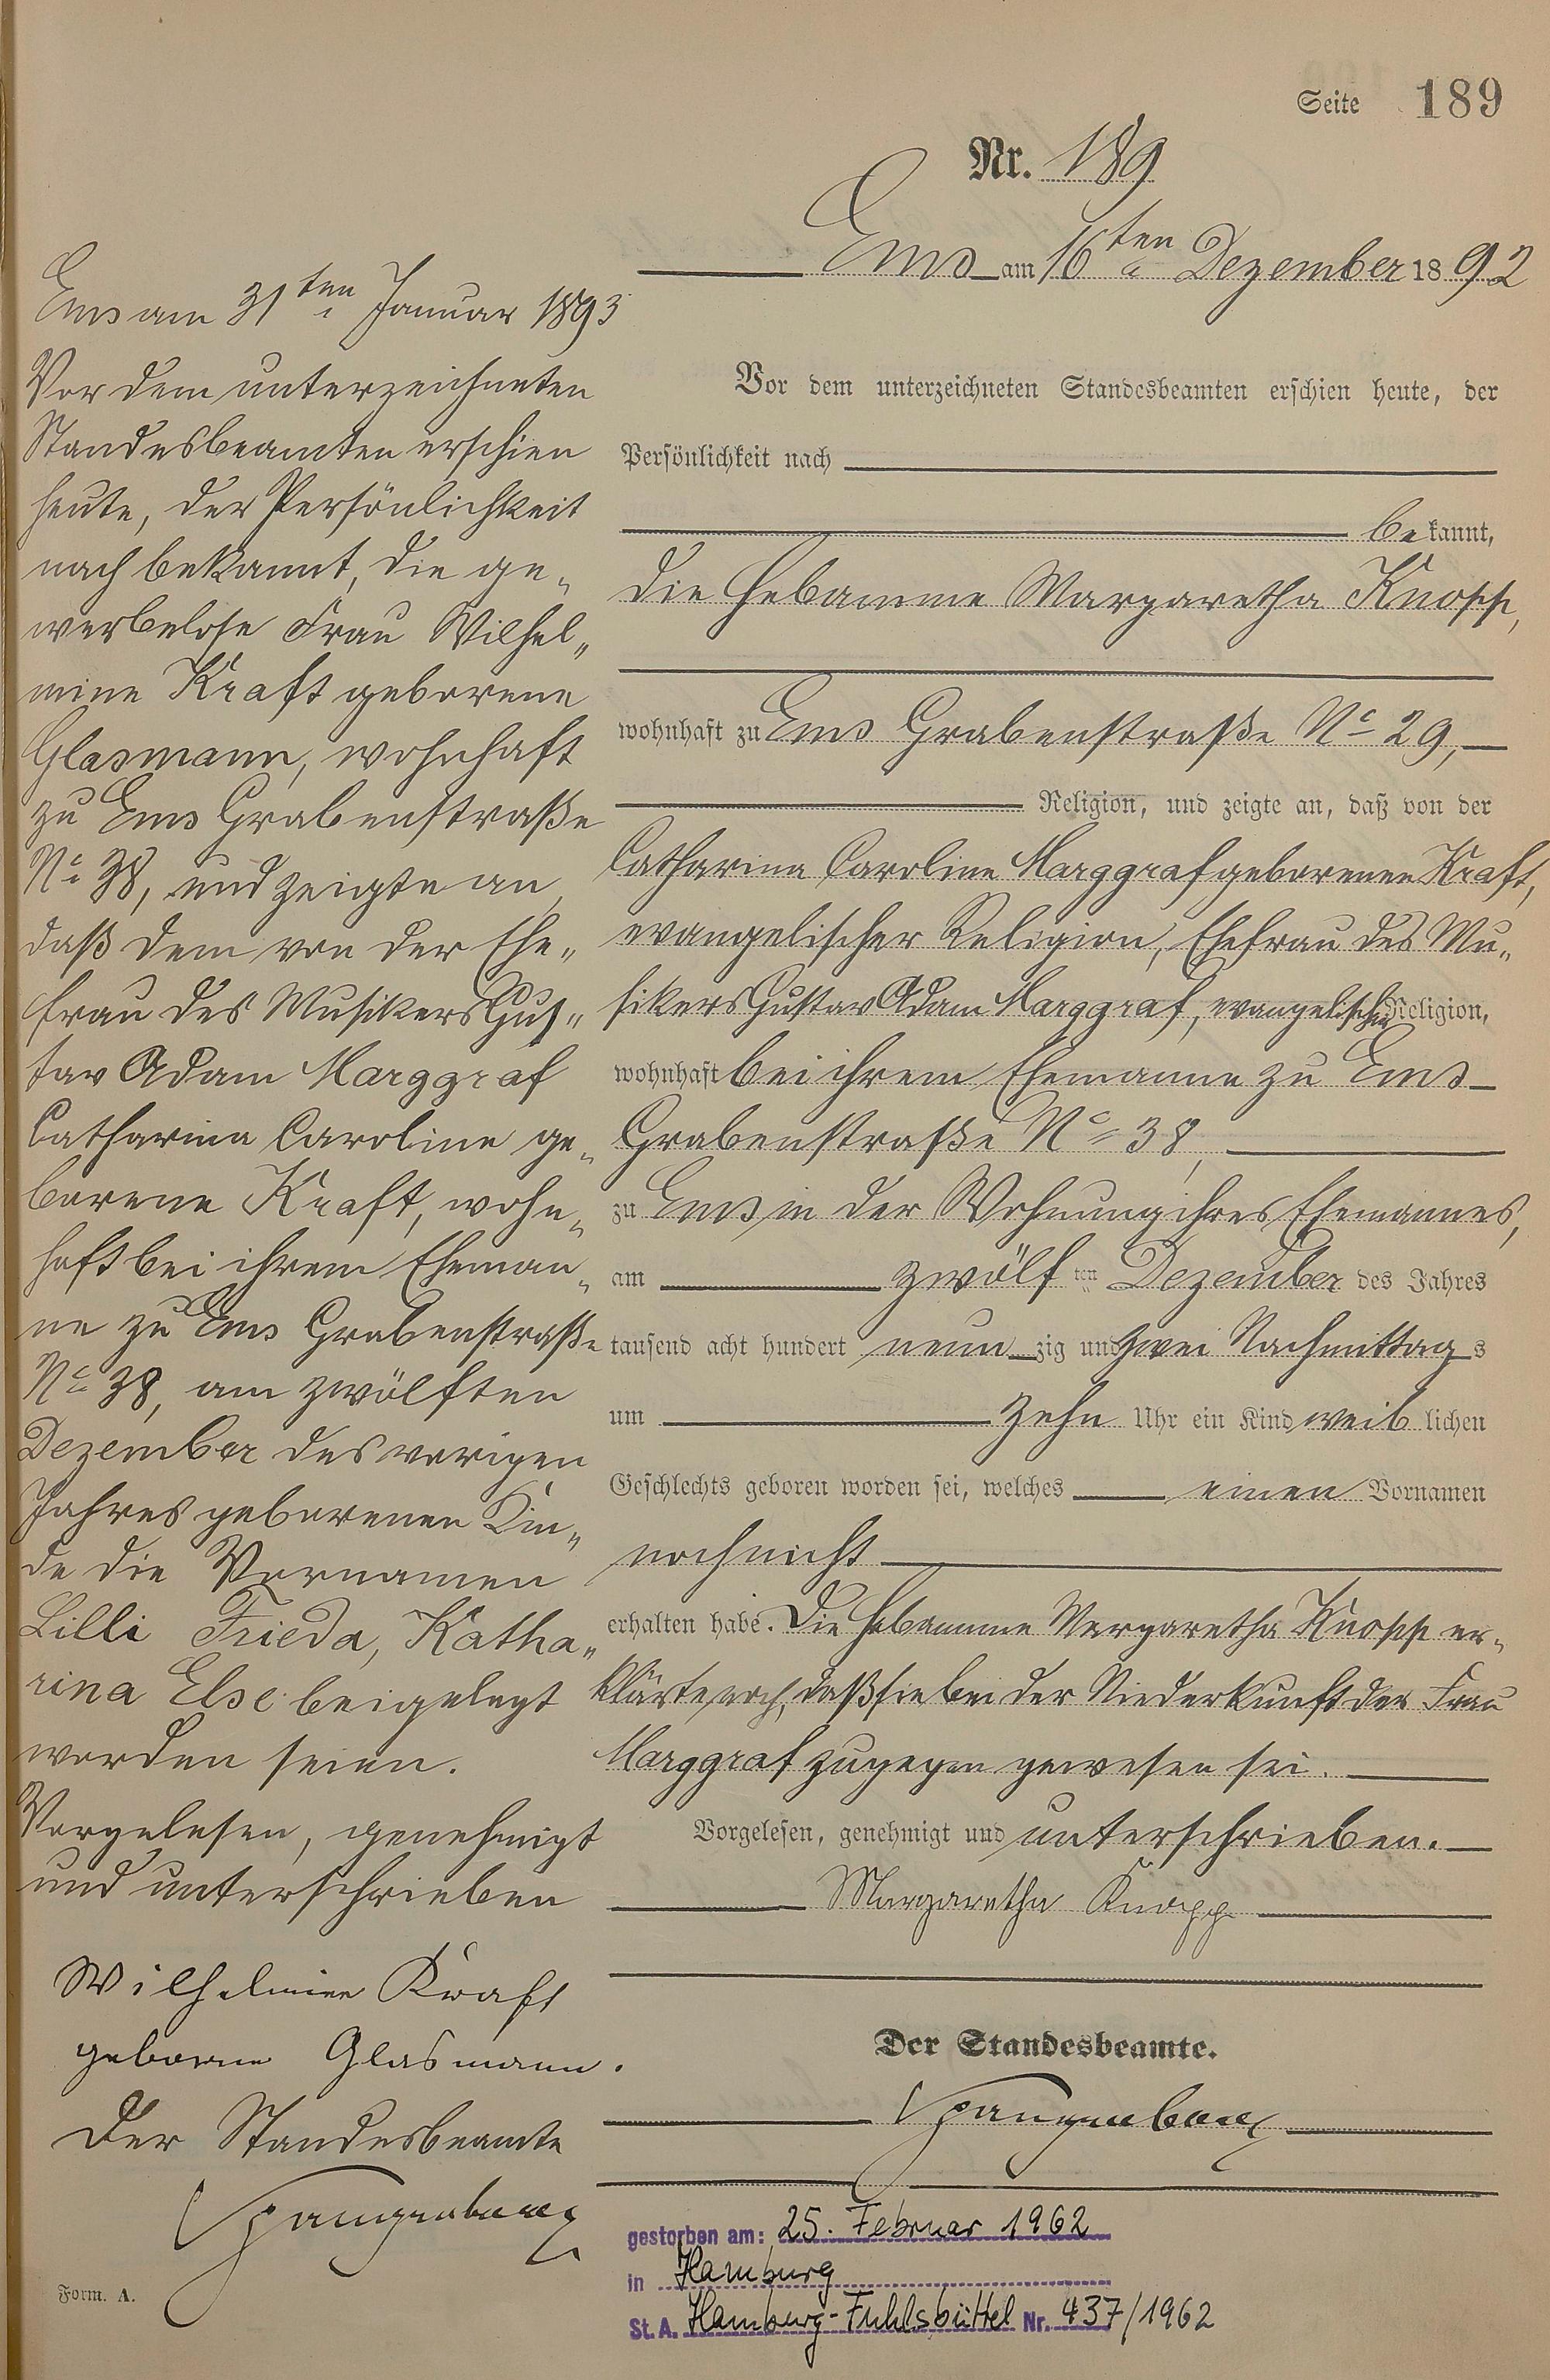 Seite 189
Nr. 189
Ems am 16ten Dezember 1892
Vor dem unterzeichneten Standesbeamten erschien heute, der
Persönlichkeit nach
bekannt,
die Hebamme Margaretha Knopp,
wohnhaft zu Ems Grabenstraße No 29,
Religion, und zeigte an, daß von der
Catharina Caroline Marggraf geborenen Kraft,
evangelischer Religion, Ehefrau des Mu„
sikers Gustav Adam Marggraf, evangelischer Religion,
wohnhaft bei ihrem Ehemanne zu Ems
Grabenstraße No 38,
zu Ems in der Wohnung ihres Ehemannes,
am zwölften Dezember des Jahres
tausend acht hundert neunzig und zwei Nachmittags
um zehn Uhr ein Kind weiblichen
Geschlechts geboren worden sei, welches einen Vornamen
noch nicht
erhalten habe. Die Hebamme Margaretha Knopp er„
klärte noch, daß sie bei der Niederkunft der Frau
Marggraf zugegen gewesen sei.
Vorgelesen, genehmigt und unterschrieben.
Margaretha Knopp
Der Standesbeamte.
Spangenberg
Ems am 31ten Januar 1893
Vor dem unterzeichneten
Standesbeamten erschien
heute, der Persönlichkeit
nach bekannt, die ge„
werbelose Frau Wilhel„
mine Kraft geborene
Glasmann, wohnhaft
zu Ems Grabenstraße
No 38, und zeigte an,
daß dem von der Ehe„
frau des Musikers Gus„
tav Adam Marggraf
Catharina Caroline ge„
borene Kraft, wohn„
haft bei ihrem Eheman„
ne zu Ems Grabenstraße
No 38, am zwölften
Dezember des vorigen
Jahres geborenen Kin„
de die Vornamen
Lilli Frieda, Katha„
rina Else beigelegt
worden seien.
Vorgelesen, genehmigt
und unterschrieben
Wilhelmine Kraft
geborne Glasmann.
Der Standesbeamte
Spangenberg
gestorben am: 25. Februar 1962
in Hamburg
St. A. Hamburg-Fuhlsbüttel Nr. 437/1962
Form. A.